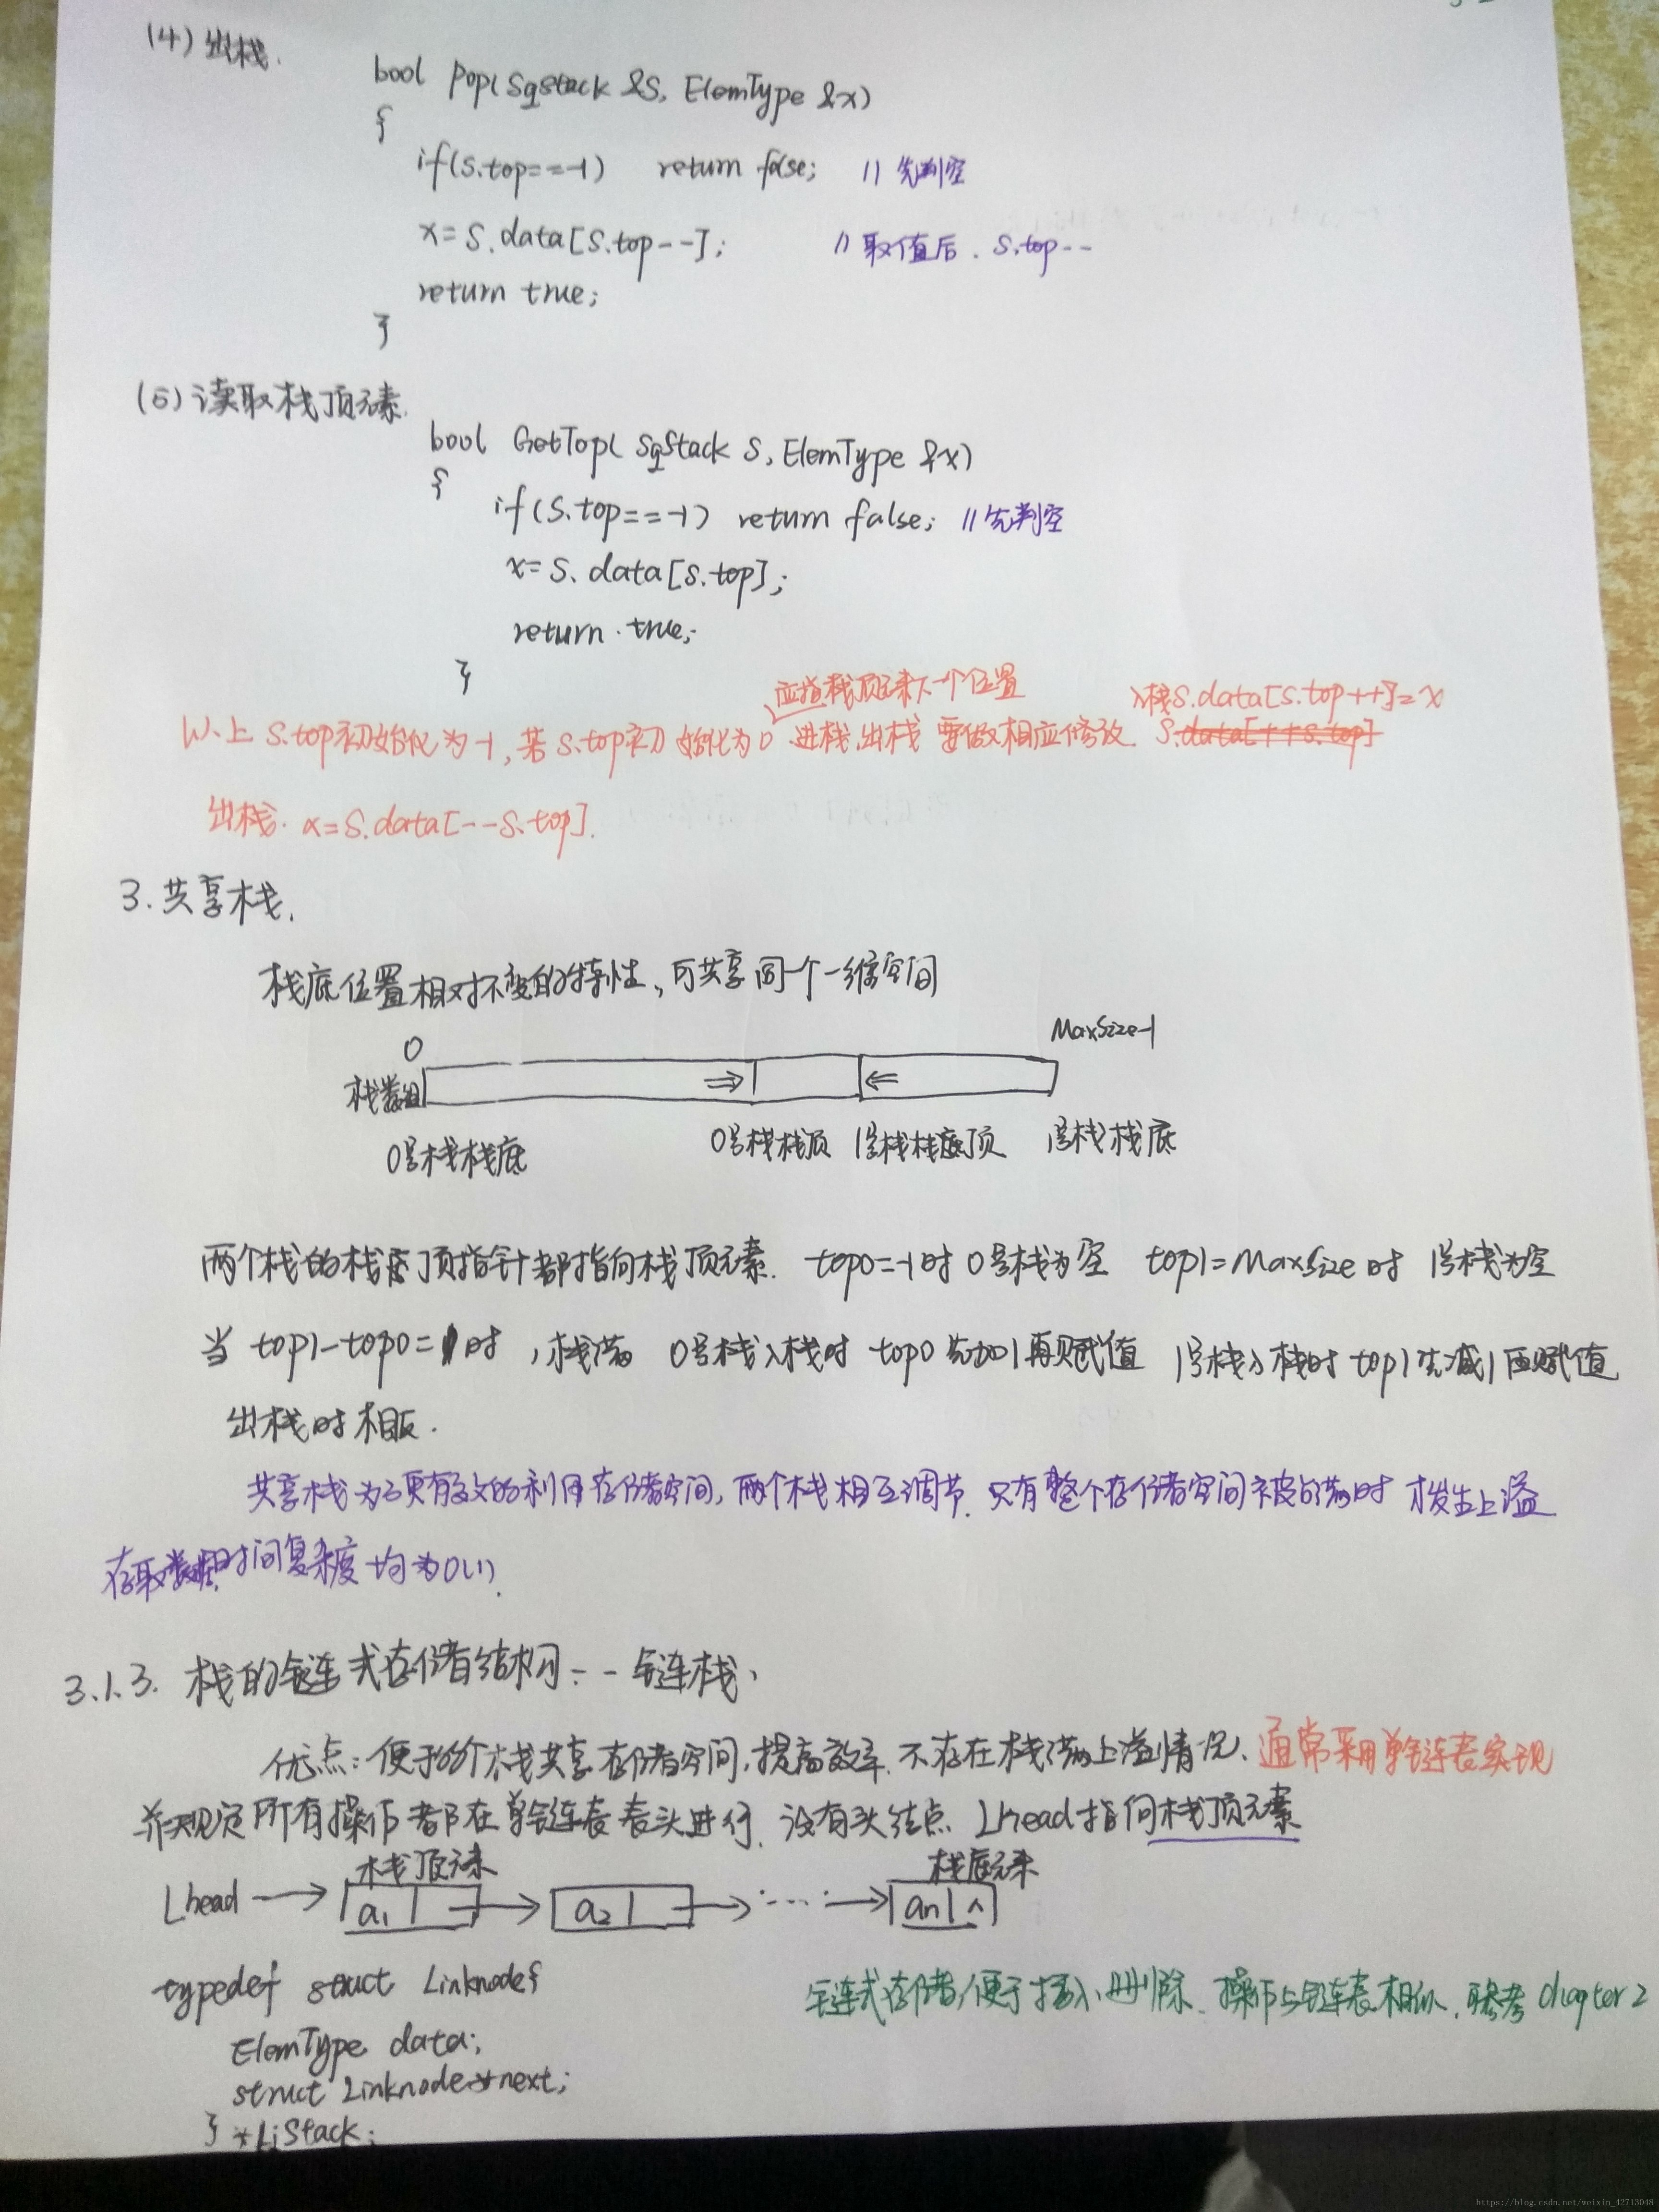 (4) 出栈.
bool Pop(SqStack &S, ElemType &x)
{
if(S.top==-1) return false; // 先判空
x=S.data[S.top--]; // 取值后. S.top--
return true;
}
(5) 读取栈顶元素.
bool GetTop( SqStack S, ElemType &x)
{
if(S.top==-1) return false; // 先判空
x=S.data[S.top];
return true;
}
应指栈顶元素下一个位置 入栈S.data[S.top++]=x
以上 S.top初始化为-1,若 S.top初始化为0 进栈.出栈 要做相应修改. S.data[++S.top]
出栈. x=S.data[--S.top].
3.共享栈.
栈底位置相对不变的特性,可共享同一个一维空间
0 MaxSize-1
栈数组
0号栈栈底 0号栈栈顶 1号栈栈顶 1号栈栈底
两个栈的栈顶指针都指向栈顶元素. top0=-1时 0号栈为空 top1=MaxSize时 1号栈为空
当 top1-top0=1时,栈满 0号栈入栈时 top0先加1再赋值 1号栈入栈时top1先减1再赋值
出栈时相反.
共享栈为了更有效的利用存储空间,两个栈相互调节.只有整个存储空间被占满时才发生上溢
存取数据时间复杂度均为O(1).
3.1.3. 栈的链式存储结构--链栈.
优点:便于多个栈共享存储空间,提高效率.不存在栈满上溢情况. 通常采用单链表实现
并规定所有操作都在单链表表头进行. 没有头结点 Lhead指向栈顶元素
栈顶元素 栈底元素
Lhead a1 a2 ···· an ^
typedef struct Linknode{
链式存储便于插入、删除. 操作与链表相似. 参考 chapter 2
ElemType data;
struct Linknode *next;
} *LiStack;
https://blog.csdn.net/weixin_42713048